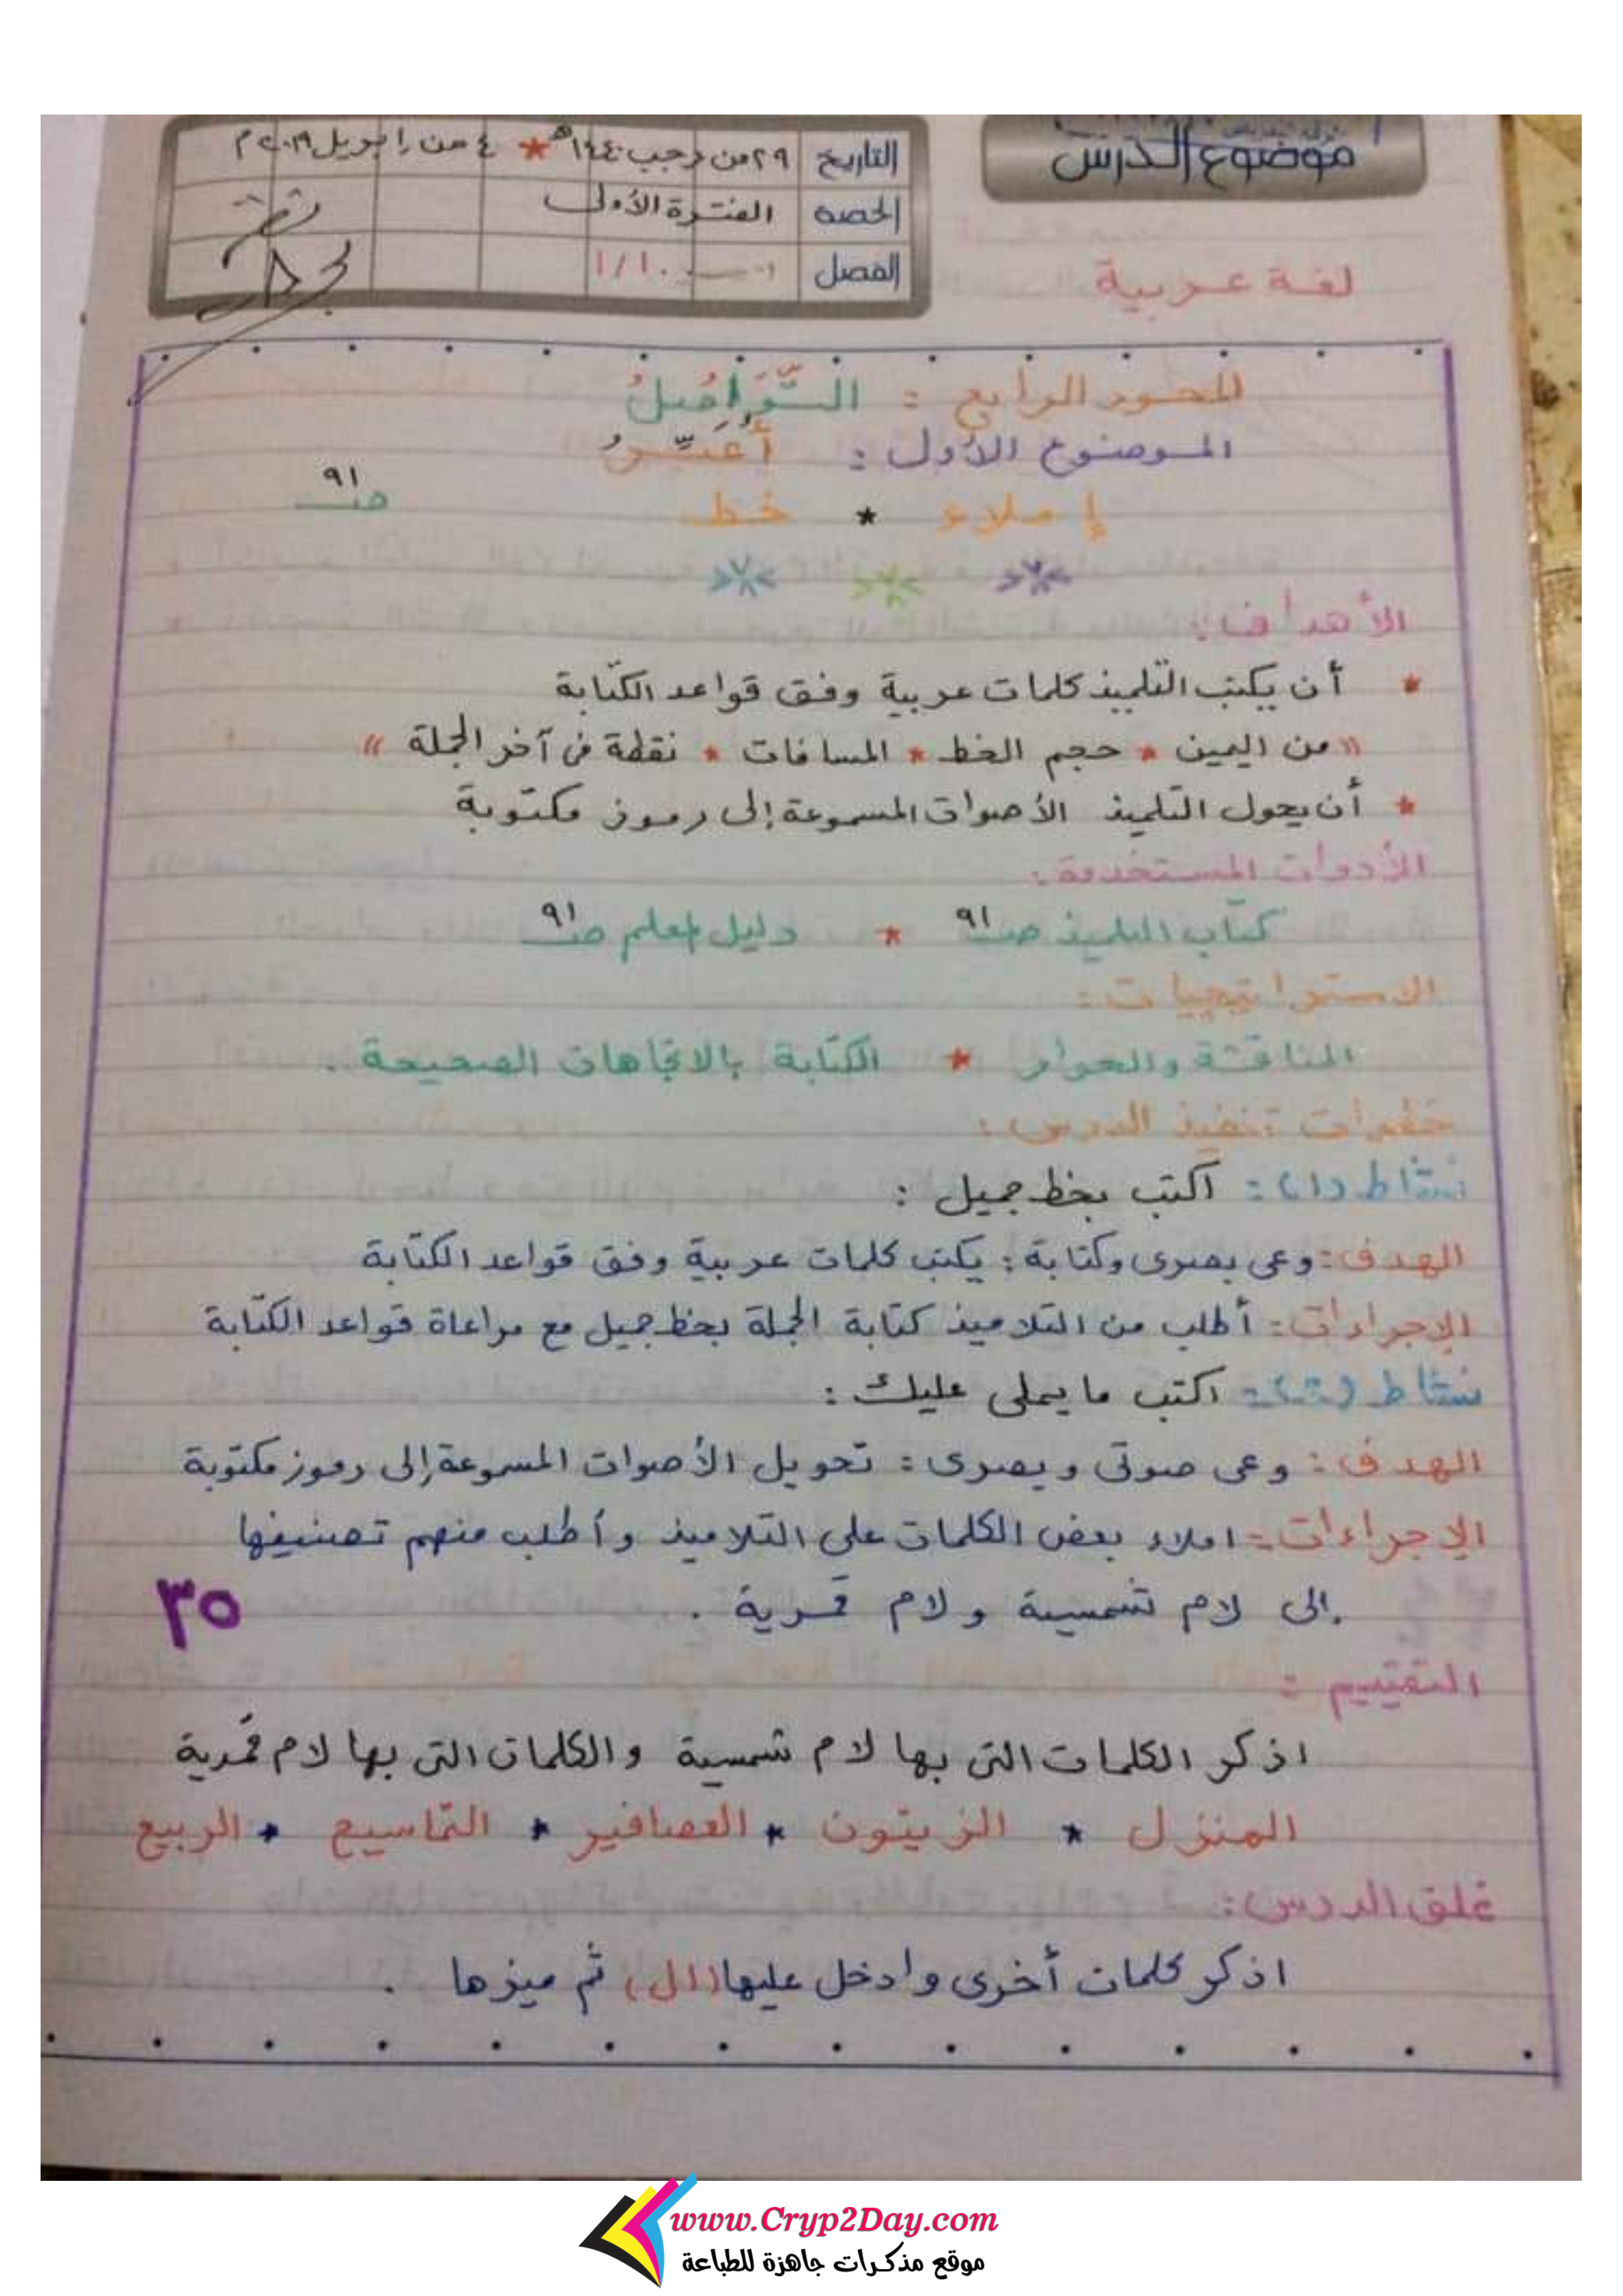 موضوع الدرس
التاريخ ٢٩ من رجب ١٤٤٠هـ * ٤ من إبريل ٢٠١٩م
الحصة الفترة الأولى
الفصل ١/١٠
لغة عربية
المحور الرابع : التَّوَاصُلُ
الموضوع الأول : أُعَبِّرُ
إملاء * خط صـ ٩١
الأهداف :
* أن يكتب التلميذ كلمات عربية وفق قواعد الكتابة
(( من اليمين * حجم الخط * المسافات * نقطة فى آخر الجملة ))
* أن يحول التلميذ الأصوات المسموعة إلى رموز مكتوبة
الأدوات المستخدمة :
كتاب التلميذ صـ ٩١ * دليل المعلم صـ ٩١
الاستراتيجيات :
المناقشة والحوار * الكتابة بالاتجاهات الصحيحة .
خطوات تنفيذ الدرس :
نشاط (١) : اكتب بخط جميل :
الهدف : وعى بصرى وكتابة : يكتب كلمات عربية وفق قواعد الكتابة
الإجراءات : أطلب من التلاميذ كتابة الجملة بخط جميل مع مراعاة قواعد الكتابة
نشاط (٢) : اكتب ما يملى عليك :
الهدف : وعى صوتى وبصرى : تحويل الأصوات المسموعة إلى رموز مكتوبة
الإجراءات : املاء بعض الكلمات على التلاميذ وأطلب منهم تصنيفها
إلى لام شمسية ولام قمرية .
٣٥
التقييم :
اذكر الكلمات التى بها لام شمسية والكلمات التى بها لام قمرية
المنزل * الزيتون * العصافير * التماسيح * الربيع
غلق الدرس :
اذكر كلمات أخرى وادخل عليها (ال) ثم ميزها .
www.Cryp2Day.com
موقع مذكرات جاهزة للطباعة